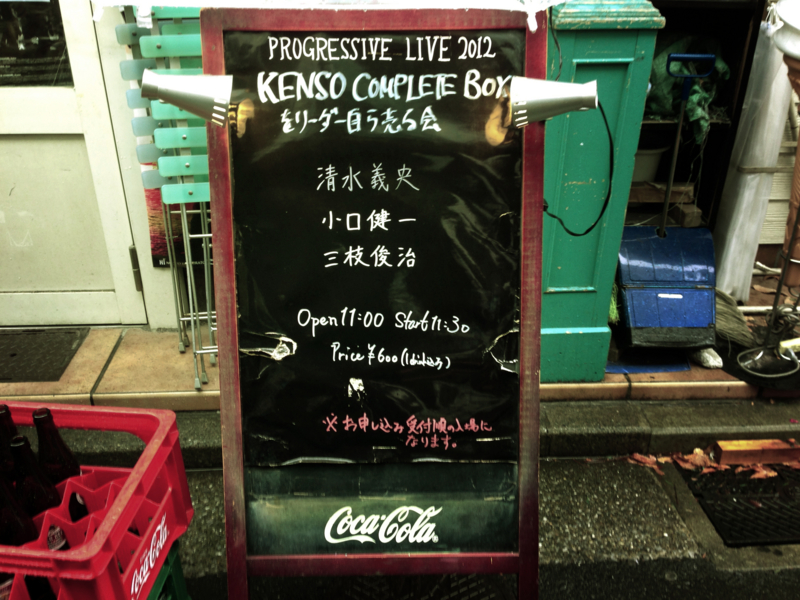 PROGRESSIVE LIVE 2012
KENSO COMPLETE BOX
をリーダー自ら売る会
清水義央
小口健一
三枝俊治
Open 11:00 Start 11:30
Price ¥600 (1drink込み)
※お申し込み受付順の入場に
なります。
Coca-Cola
Coca-Cola